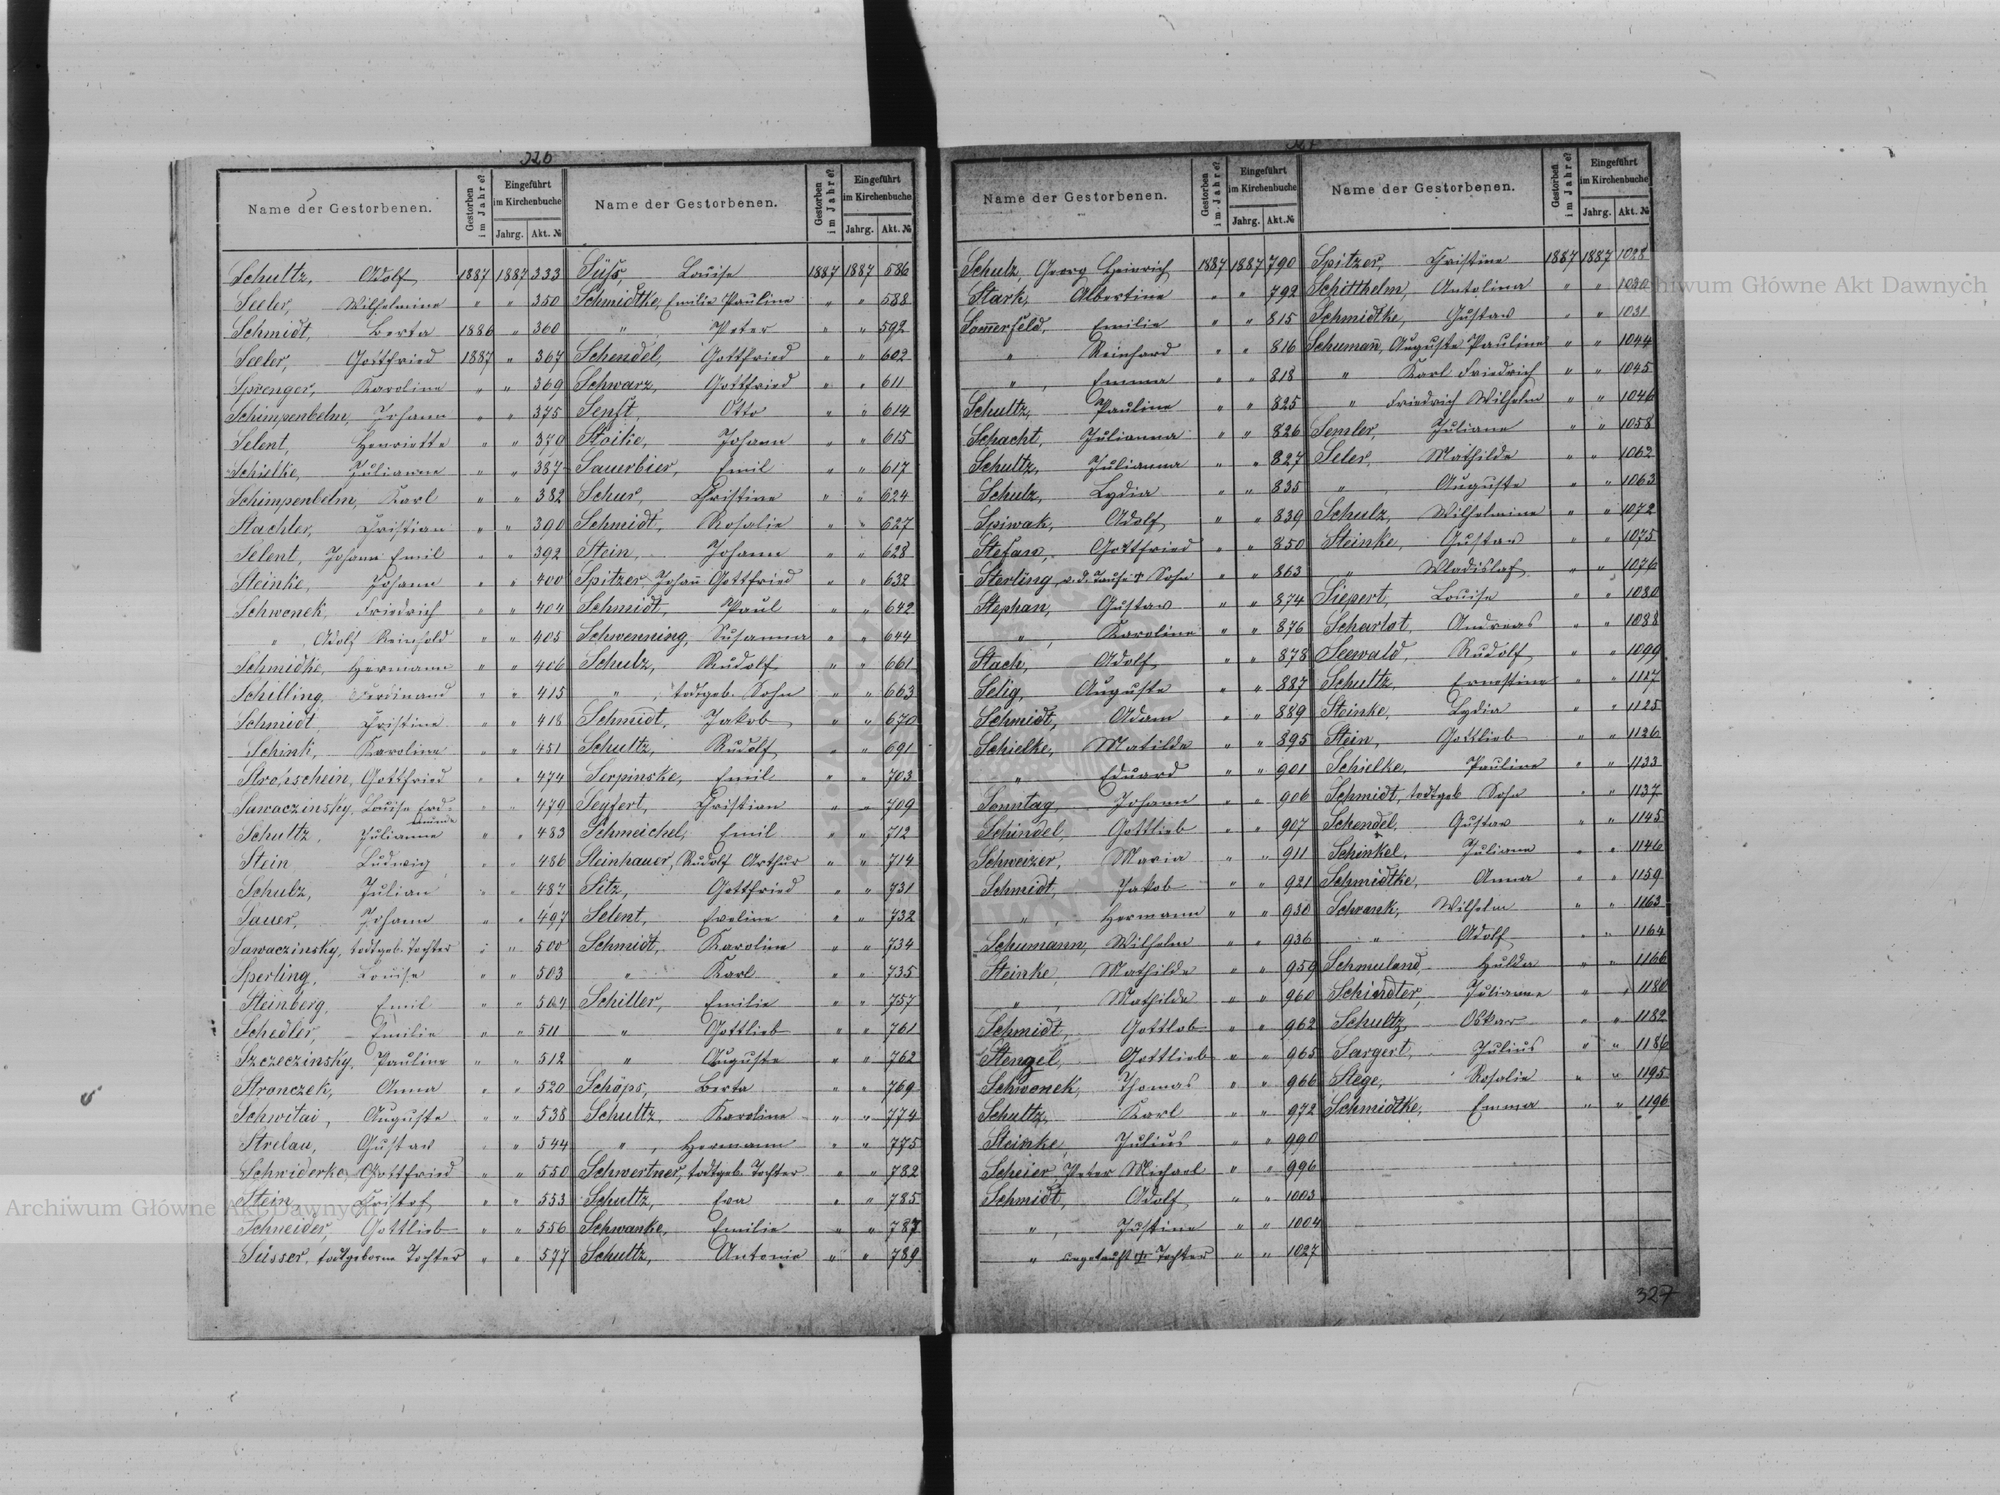 326
Name der Gestorbenen. Gestorben im Jahre? Eingeführt im Kirchenbuche Jahrg. Akt. №
Schultz, Adolf 1887 1887 333
Seeler, Wilhelmine " " 350
Schmidt, Berta 1886 " 360
Seeler, Gottfried 1887 " 367
Sprenger, Karoline " " 369
Schimpenbelm, Johann " " 375
Selent, Henriette " " 379
Schielke, Julianne " " 387
Schimpenbelm, Karl " " 382
Stachler, Christian " " 390
Selent, Johann Emil " " 392
Steinke, Johann " " 400
Schwonek, Friedrich " " 404
" Adolf Reinhold " " 405
Schmidke, Hermann " " 406
Schilling, Ferdinand " " 415
Schmidt, Christine " " 418
Schink, Karoline " " 451
Strohschein, Gottfried " " 474
Sawaczinsky, Louise " " 479
Schultz, Julianne " " 483
Stein Ludwig " " 486
Schulz, Julian " " 487
Sauer, Johann " " 497
Sawaczinsky, todtgeb. Tochter " " 500
Sperling, Louise " " 503
Steinberg, Emil " " 504
Schedler, Emilie " " 511
Szczeczinsky, Pauline " " 512
Stronczek, Anna " " 520
Schwitai, Auguste " " 538
Strelau, Gustav " " 544
Schwiderke, Gottfried " " 550
Stein, Christof " " 553
Schneider, Gottlieb " " 556
Süsser, todtgeborne Tochter " " 577
Name der Gestorbenen. Gestorben im Jahre? Eingeführt im Kirchenbuche Jahrg. Akt. №
Süss Louise 1887 1887 586
Schmidtke, Emilie Pauline " " 588
" Peter " " 592
Schendel, Gottfried " " 602
Schwarz, Gottfried " " 611
Senft, Otto " " 614
Stoike, Johann " " 615
Sauerbier, Emil " " 617
Schur, Christine " " 624
Schmidt, Rosalie " " 627
Stein, Johann " " 628
Spitzer, Johann Gottfried " " 632
Schmidt, Paul " " 642
Schwenning, Susanna " " 644
Schulz, Rudolf " " 661
" todtgeb. Sohn " " 663
Schmidt, Jakob " " 670
Schultz, Rudolf " " 691
Serpinske, Emil " " 703
Seyfert, Christian " " 709
Schmeichel, Emil " " 712
Steinhauer, Rudolf Arthur " " 714
Sitz, Gottfried " " 731
Selent, Eveline " " 732
Schmidt, Karoline " " 734
" Karl " " 735
Schiller, Emilie " " 757
" Gottlieb " " 761
" Auguste " " 762
Schöps, Berta " " 769
Schultz, Karoline " " 774
" , Hermann " " 775
Schwertner, todtgeb. Tochter " " 782
Schultz, Eva " " 785
Schwanke, Emilie " " 787
Schultz, Antonie " " 789
Name der Gestorbenen. Gestorben im Jahre? Eingeführt im Kirchenbuche Jahrg. Akt. №
Schulz, Georg Heinrich 1887 1887 790
Stark, Albertine " " 792
Som̅erfeld, Emilie " " 815
" Reinhard " " 816
" , Emma " " 818
Schultz, Pauline " " 825
Schacht, Julianna " " 826
Schultz, Julianna " " 827
Schulz, Lydia " " 835
Spiwak, Adolf " " 839
Stefan, Gottfried " " 850
Sterling, v. d. Taufe † Sohn " " 863
Stephan, Gustav " " 874
" , Karoline " " 876
Stach, Adolf " " 878
Selig, Auguste " " 887
Schmidt, Adam " " 889
Schielke, Matilde " " 895
" Eduard " " 901
Sonntag, Johann " " 906
Schindel, Gottlieb " " 907
Schweizer, Maria " " 911
Schmidt, Jakob " " 921
" , Hermann " " 930
Schumann, Wilhelm " " 936
Steinke, Mathilde " " 959
" , Mathilde " " 960
Schmidt, Gottlob " " 962
Stengel, Gottlieb " " 965
Schwonek, Thomas " " 966
Schultz, Karl " " 972
Steinke, Julius " " 990
Scheier, Peter Michael " " 996
Schmidt, Adolf " " 1003
" , Justine " " 1004
" ungetauft Tochter " " 1027
Name der Gestorbenen. Gestorben im Jahre? Eingeführt im Kirchenbuche Jahrg. Akt. №
Spitzer, Christine 1887 1887 1028
Schitthelm, Antolina " " 1030
Schmidtke, Gustav " " 1031
Schuman̅, Auguste Pauline " " 1044
" Karl Friedrich " " 1045
" Friedrich Wilhelm " " 1046
Semler, Juliane " " 1058
Seler, Mathilde " " 1062
" , Auguste " " 1063
Schulz, Wilhelmine " " 1072
Steinke, Gustav " " 1075
" Wladislaf " " 1076
Siepert, Louise " " 1080
Scharlot, Andreas " " 1088
Seewald, Rudolf " " 1099
Schultz, Ernestine " " 1117
Steinke, Lydia " " 1125
Stein, Gottlieb " " 1126
Schielke, Pauline " " 1133
Schmidt, todtgeb. Sohn " " 1137
Schendel, Gustav " " 1145
Schinkel, Juliane " " 1146
Schmidtke, Anna " " 1159
Schrank, Wilhelm " " 1163
" Adolf " " 1164
Schmuland, Hulda " " 1166
Schindler, Julianne " " 1180
Schultz, Oskar " " 1182
Sargert, Julius " " 1186
Stege, Rosalie " " 1195
Schmidtke, Emma " " 1196
327
Archiwum Główne Akt Dawnych
Archiwum Główne Akt Dawnych